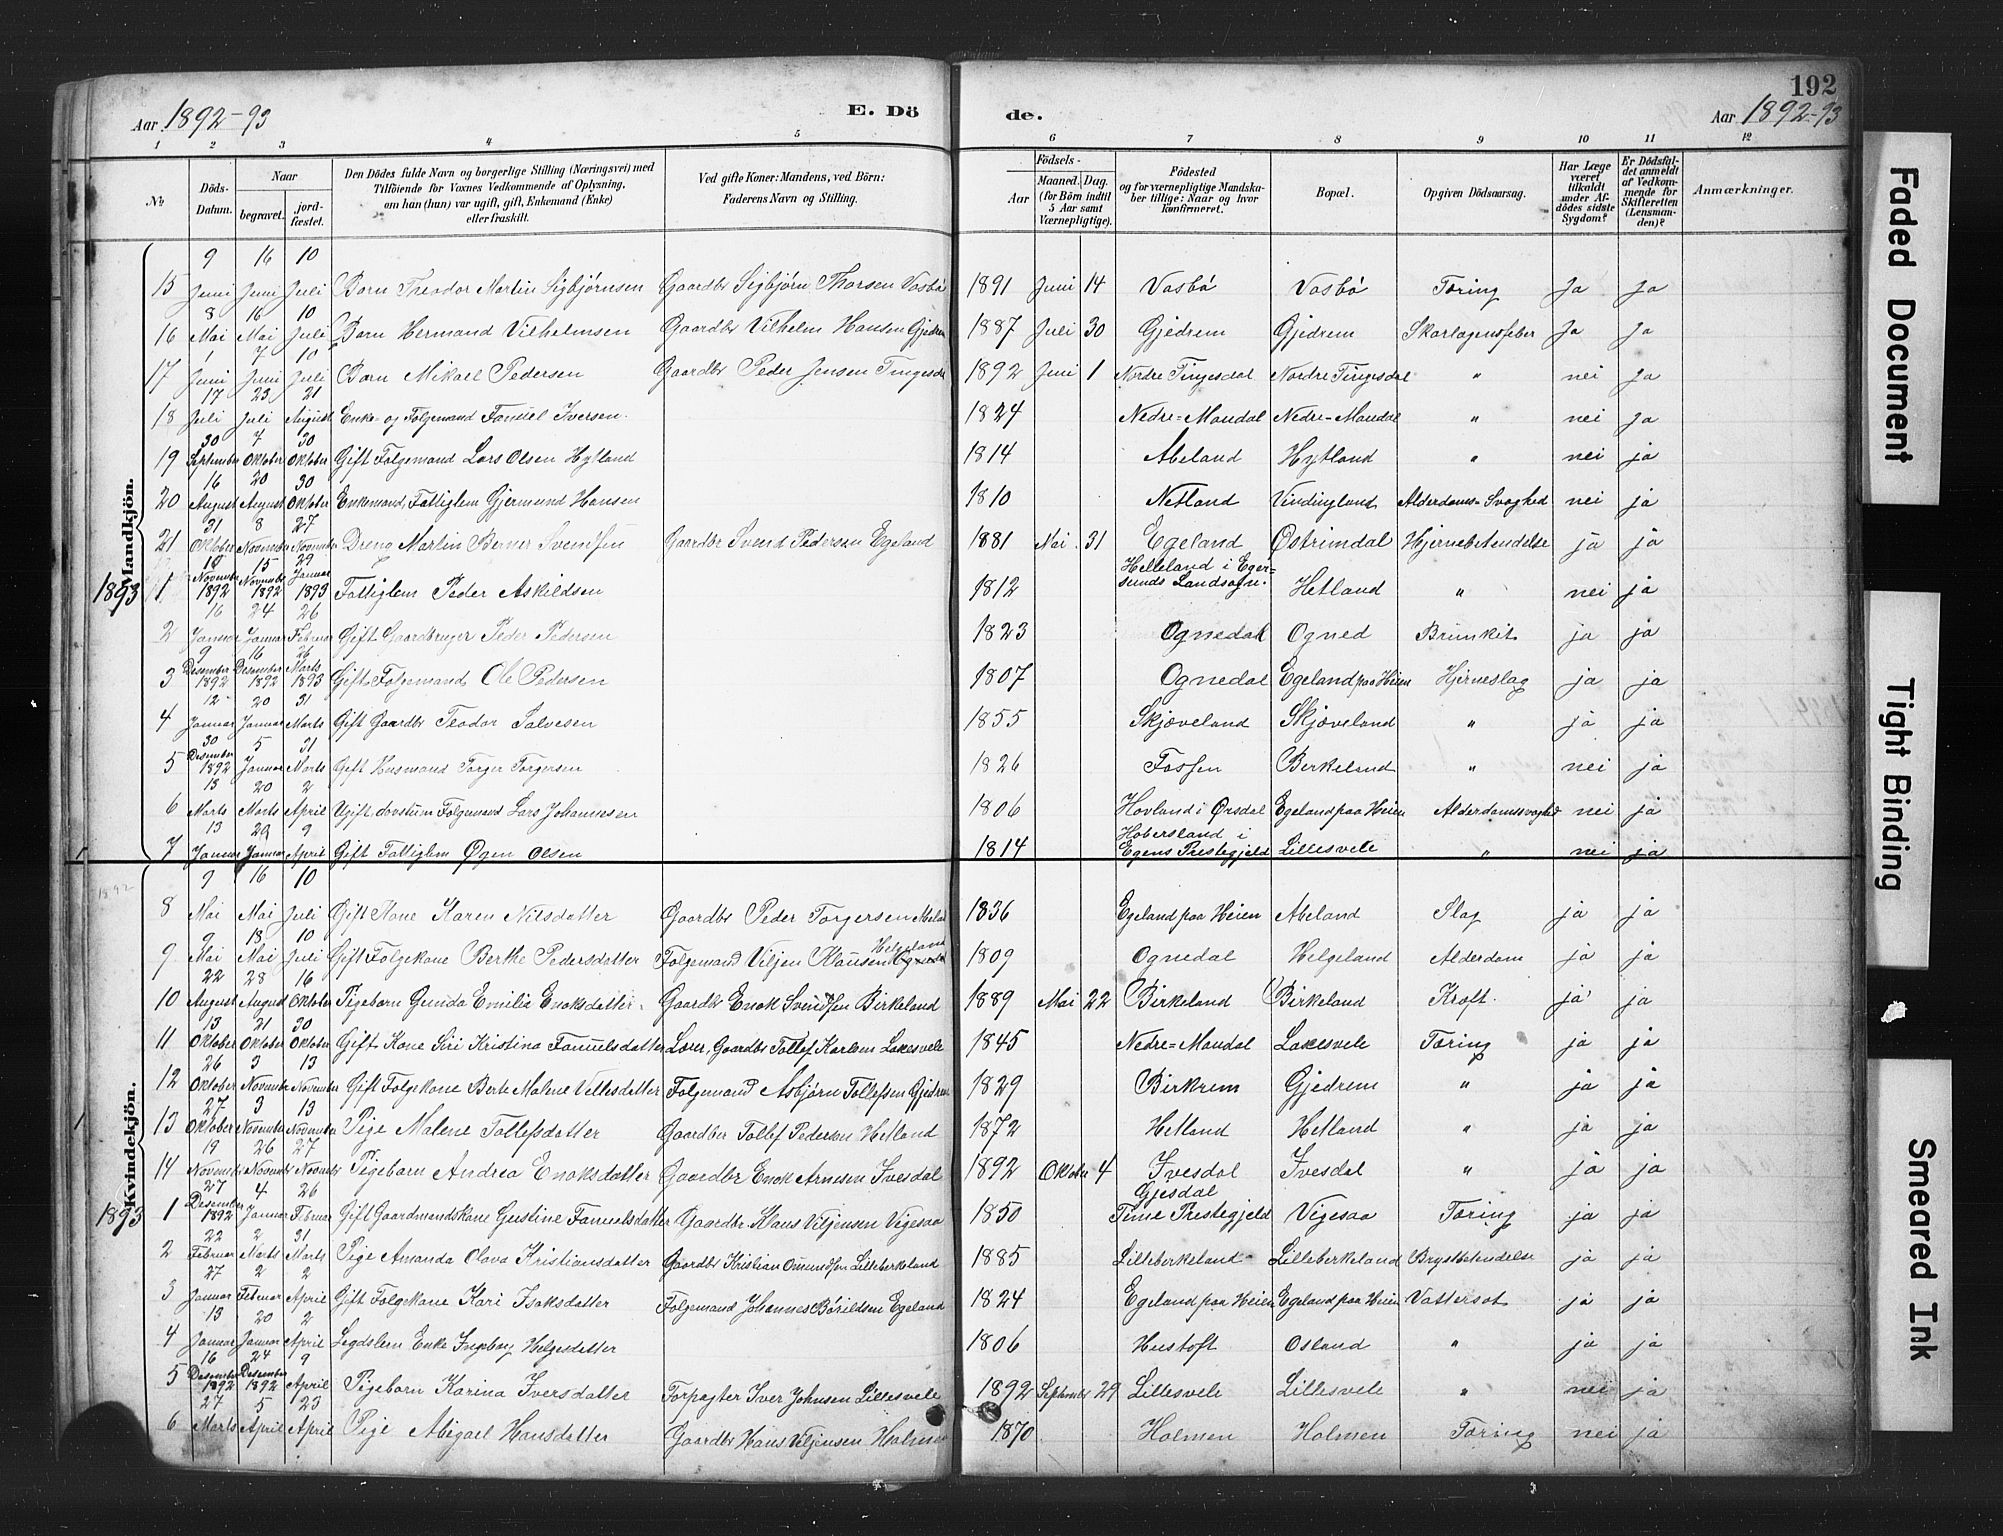 192
Aar 1892-93
E. Dö
de.
Aar 1892-93
1 2 3 4 5 6 7 8 9 10 11 12
№
Döds-Datum.
Naar
begravet.
jord-fæstet.
Den Dödes fulde Navn og borgerlige Stilling (Næringsvei) med
Tilföiende for Voxnes Vedkommende af Oplysning,
om han (hun) var ugift, gift, Enkemand (Enke)
eller fraskilt.
Ved gifte Koner: Mandens, ved Börn:
Faderens Navn og Stilling.
Födsels-
Aar
Maaned. Dag.
(for Börn indtil
5 Aar samt
Værnepligtige).
Födested
og for værnepligtige Mandska-
ber tillige: Naar og hvor
konfirmeret.
Bopæl.
Opgiven Dödsaarsag.
Har Læge
været
tilkaldt
under Af-
dödes sidste
Sygdom?
Er Dödsfal-
det anmeldt
af Vedkom-
mende for
Skifteretten
(Lensman-
den)?
Anmærkninger.
Mandkjön.
15 9 Juni 16 Juni 10 Juli Barn Theodor Martin Sigbjørnsen Gaardbr Sigbjørn Thorsen Vasbø 1891 Juni 14 Vasbø Vasbø Tæring Ja Ja
16 8 Mai 16 Mai 10 Juli Barn Hermand Vilhelmsen Gaardbr Vilhelm Hansen Gjedrem 1887 Juli 30 Gjedrem Gjedrem Skarlagensfeber Ja Ja
17 1 Juni 7 Juni 10 Juli Barn Mikael Pedersen Gaardbr Peder Jensen 1892 Juni 1 Nordre Tingesdal Nordre Tingesdal " nei Ja
18 17 Juli 23 Juli 21 August Enke- og Folgemand Iversen. 1824 Nedre-Maudal Nedre-Maudal " nei Ja
19 30 September 7 Oktober 30 Oktober Gift Folgemand Lars Olsen Hytland 1814 Abeland Hytland " nei ja
20 16 August 20 August 30 Oktober Enkemand, Fattiglem Gjermund Hansen 1810 Netland Vindingland Alderdoms-Svaghed nei ja
21 31 Oktober 8 November 27 November Dreng Martin Berner Svendsen Gaardbr Svend Pedersen Egeland 1881 Mai 31 Egeland Østrimdal Hjernebetendelse ja ja
1893 1 18 November 1892 15 November 1892 29 Januar 1893 Fattiglem Peder Askildsen 1812 Helleland i Eger-
sunds Landsogn. Hetland " nei ja
2 16 Januar 24 Januar 26 Februar Gift Gaardbruger Peder Pedersen 1823 Ognedal Ogned ja ja
3 9 Desember 1892 16 Desember 1892 26 Marts 1893 Gift Folgemand Ole Pedersen 1807 Ognedal Egeland paa Heien Hjerneslag ja ja
4 12 Januar 20 Januar 31 Marts Gift Gaardbr Teodor Salvesen 1855 Skjæveland Skjæveland " ja ja
5 30 Desember 1892 5 Januar 31 Marts Gift Husmand Torger Torgersen 1826 Fossen Birkeland " nei ja
6 13 Marts 20 Marts 2 April Ugift døvstum Folgemand Lars Johannesen 1806 Hovland i Ørsdal Egeland paa Heien Alderdomssvaghed nei ja
7 13 Januar 29 Januar 9 April Gift Fattiglem Øgen Olsen 1814 i
Egens Prestegjeld Lillesvele " nei ja
1892
Kvindekjön.
8 9 Mai 16 Mai 10 Juli Gift Kone Karen Nilsdatter Gaardbr Peder Torgersen 1836 Egeland paa Heien Abeland Slag ja ja
9 9 Mai 18 Mai 10 Juli Gift Folgekone Berthe Pedersdatter Folgemand Viljen Klausen Helgeland 1809 Ognedal Helgeland Alderdom ja ja
10 22 August 28 August 16 Oktober Pigebarn Gunda Emilia Enoksdatter Gaardbr Enok Svendsen Birkeland 1889 Mai 22 Birkeland Birkeland Kræft. ja ja
11 13 Oktober 21 Oktober 30 Oktober Gift Kone Siri Kristina Lærer, Gaardbr Tollef Karlsen Laksesvele 1845 Nedre-Maudal Laksesvele Tæring ja ja
12 26 Oktober 3 November 13 November Gift Folgekone Berte Malene Folgemand Asbjørn Tollefsen Gjedrem 1829 Birkrem Gjedrem " ja ja
13 27 Oktober 3 November 13 November Pige Malene Tollefsdatter Gaardbr Tollef Pedersen Hetland 1872 Hetland Hetland " ja ja
14 19 November 26 November 27 November Pigebarn Andrea Enoksdatter Gaardbr Enok Arnesen Ivesdal 1892 Oktober 4 Ivesdal Ivesdal " ja ja
1893 1 27 Desember 1892 4 Januar 26 Februar Gift Gaardmandskone Gustine Gaardbr Klaus Viljensen Vigesaa 1850 Gjesdal
Time Prestegjeld Vigesaa Tæring ja ja
2 22 Februar 2 Marts 31 Marts Pige Amanda Olava Kristiansdatter Gaardbr Kristian Omundsen Lilleberkeland 1885 Lilleberkeland Lilleberkeland Brystbetendelse ja ja
3 27 Januar 2 Februar 2 April Gift Folgekone Kari Isaksdatter Folgemand Johannes Egeland 1824 Egeland paa Heien Egeland paa Heien Vattersot ja ja
4 13 Januar 20 Januar 2 April Legdslem Enke Ingeborg Helgesdatter 1806 Hustoft Osland " ja ja
5 16 Desember 1892 24 Desember 1892 9 April Pigebarn Karina Iversdatter Forpagter Iver Johnsen Lillesvele 1892 September 29 Lillesvele Lillesvele " nei ja
6 27 Marts 5 April 23 April Pige Abigael Hansdatter Gaardbr Hans Viljensen Holmen 1870 Holmen Holmen Tæring nei ja
Faded Document
Tight Binding
Smeared Ink